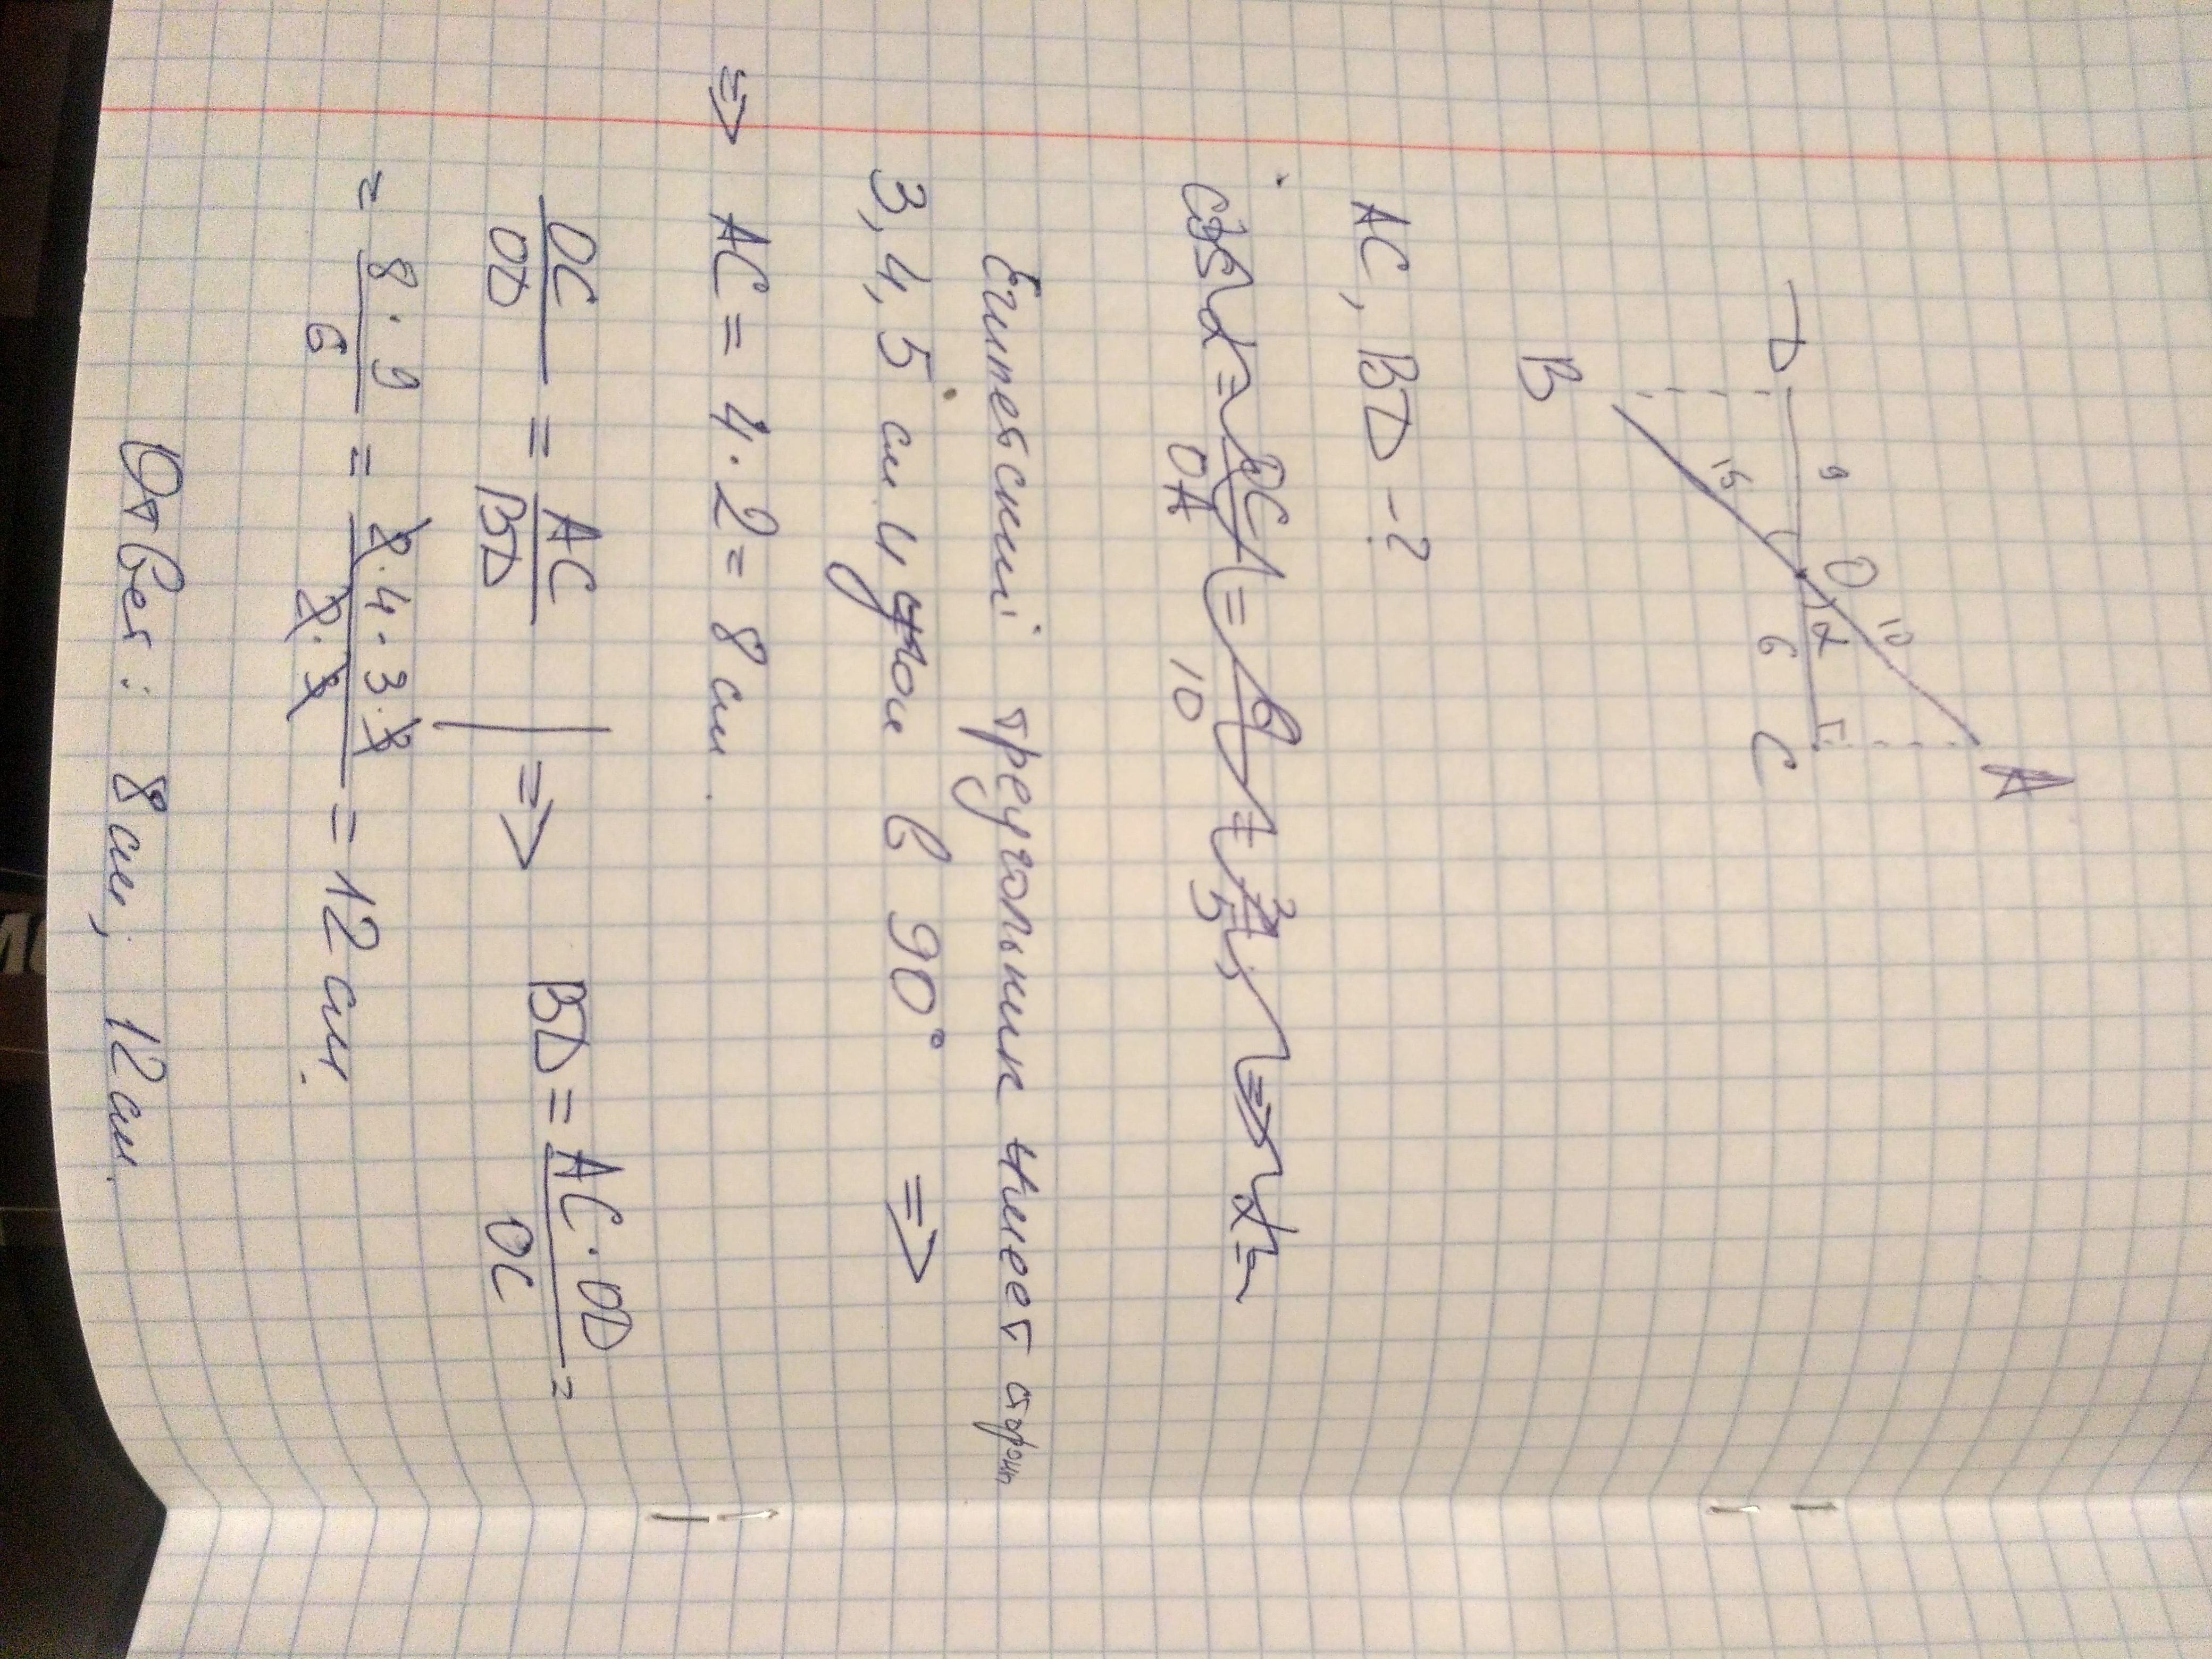 A
O 10
D 9 α
15 6 C
B
AC, BD - ?
cos α = OC/OA = 6/10 = 3/5, => α =
Египетский треугольник имеет сторон
3, 4, 5 см и угол в 90° =>
=> AC = 4 · 2 = 8 см.
OC/OD = AC/BD | => BD = AC · OD/OC =
= 8 · 9/6 = 2 · 4 · 3 · 3/2 · 3 = 12 см.
Ответ: 8 см; 12 см.